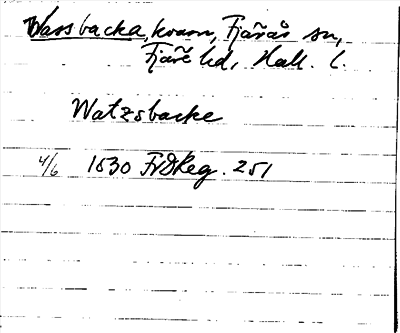 Wassbacka, kvarn, Fjärås sn,
Fjäre hd, Hall. l.
Watzsbacke
4/6 1630 FrDReg. 251